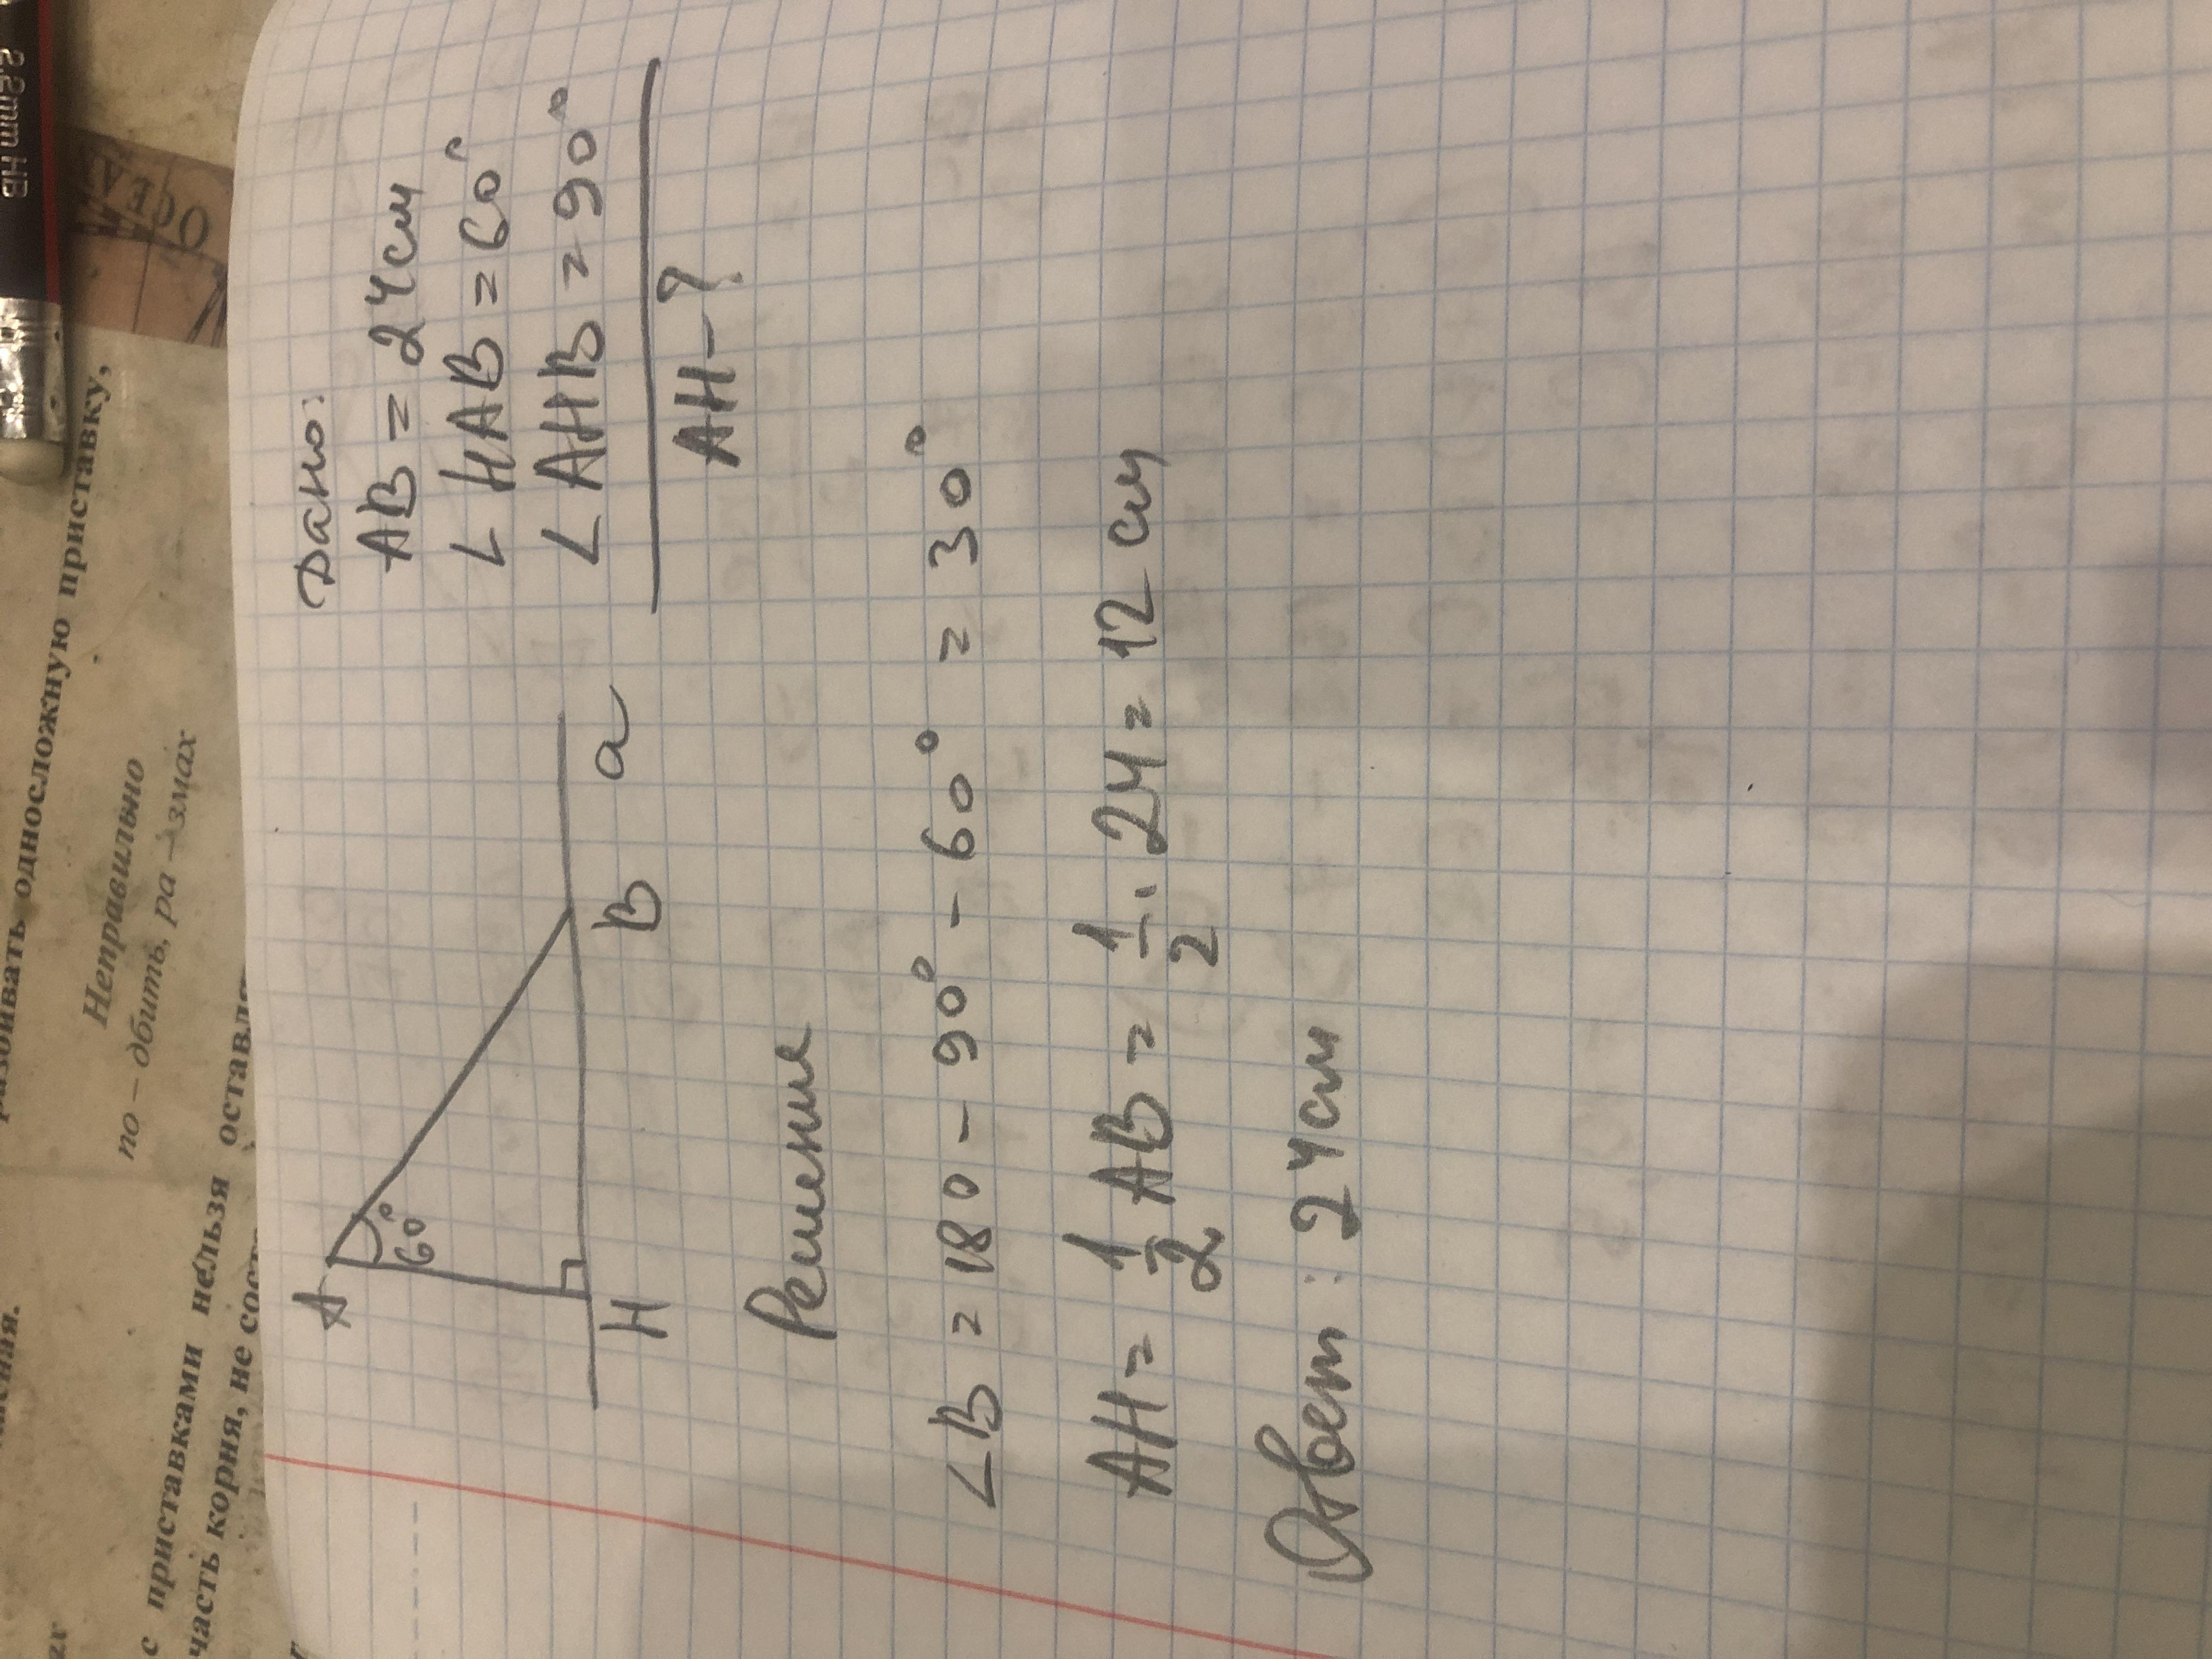 Дано:
AB = 24см
∠HAB = 60°
∠AHB = 90°
AH - ?
A
60°
H
B
a
Решение
∠B = 180 - 90° - 60° = 30°
AH = 1/2 AB = 1/2 · 24 = 12 см
Ответ: 24см
2.2mm HB
ОСЕА
разбивать односложную приставку,
Неправильно
по – дбить, ра – змах
с приставками нельзя оставля
часть корня, не сост